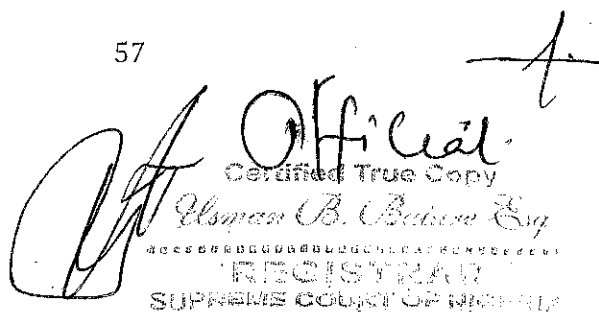 57
Official.
Certified True Copy
Usman B. Esq
REGISTRAR
SUPREME COURT OF NIGERIA